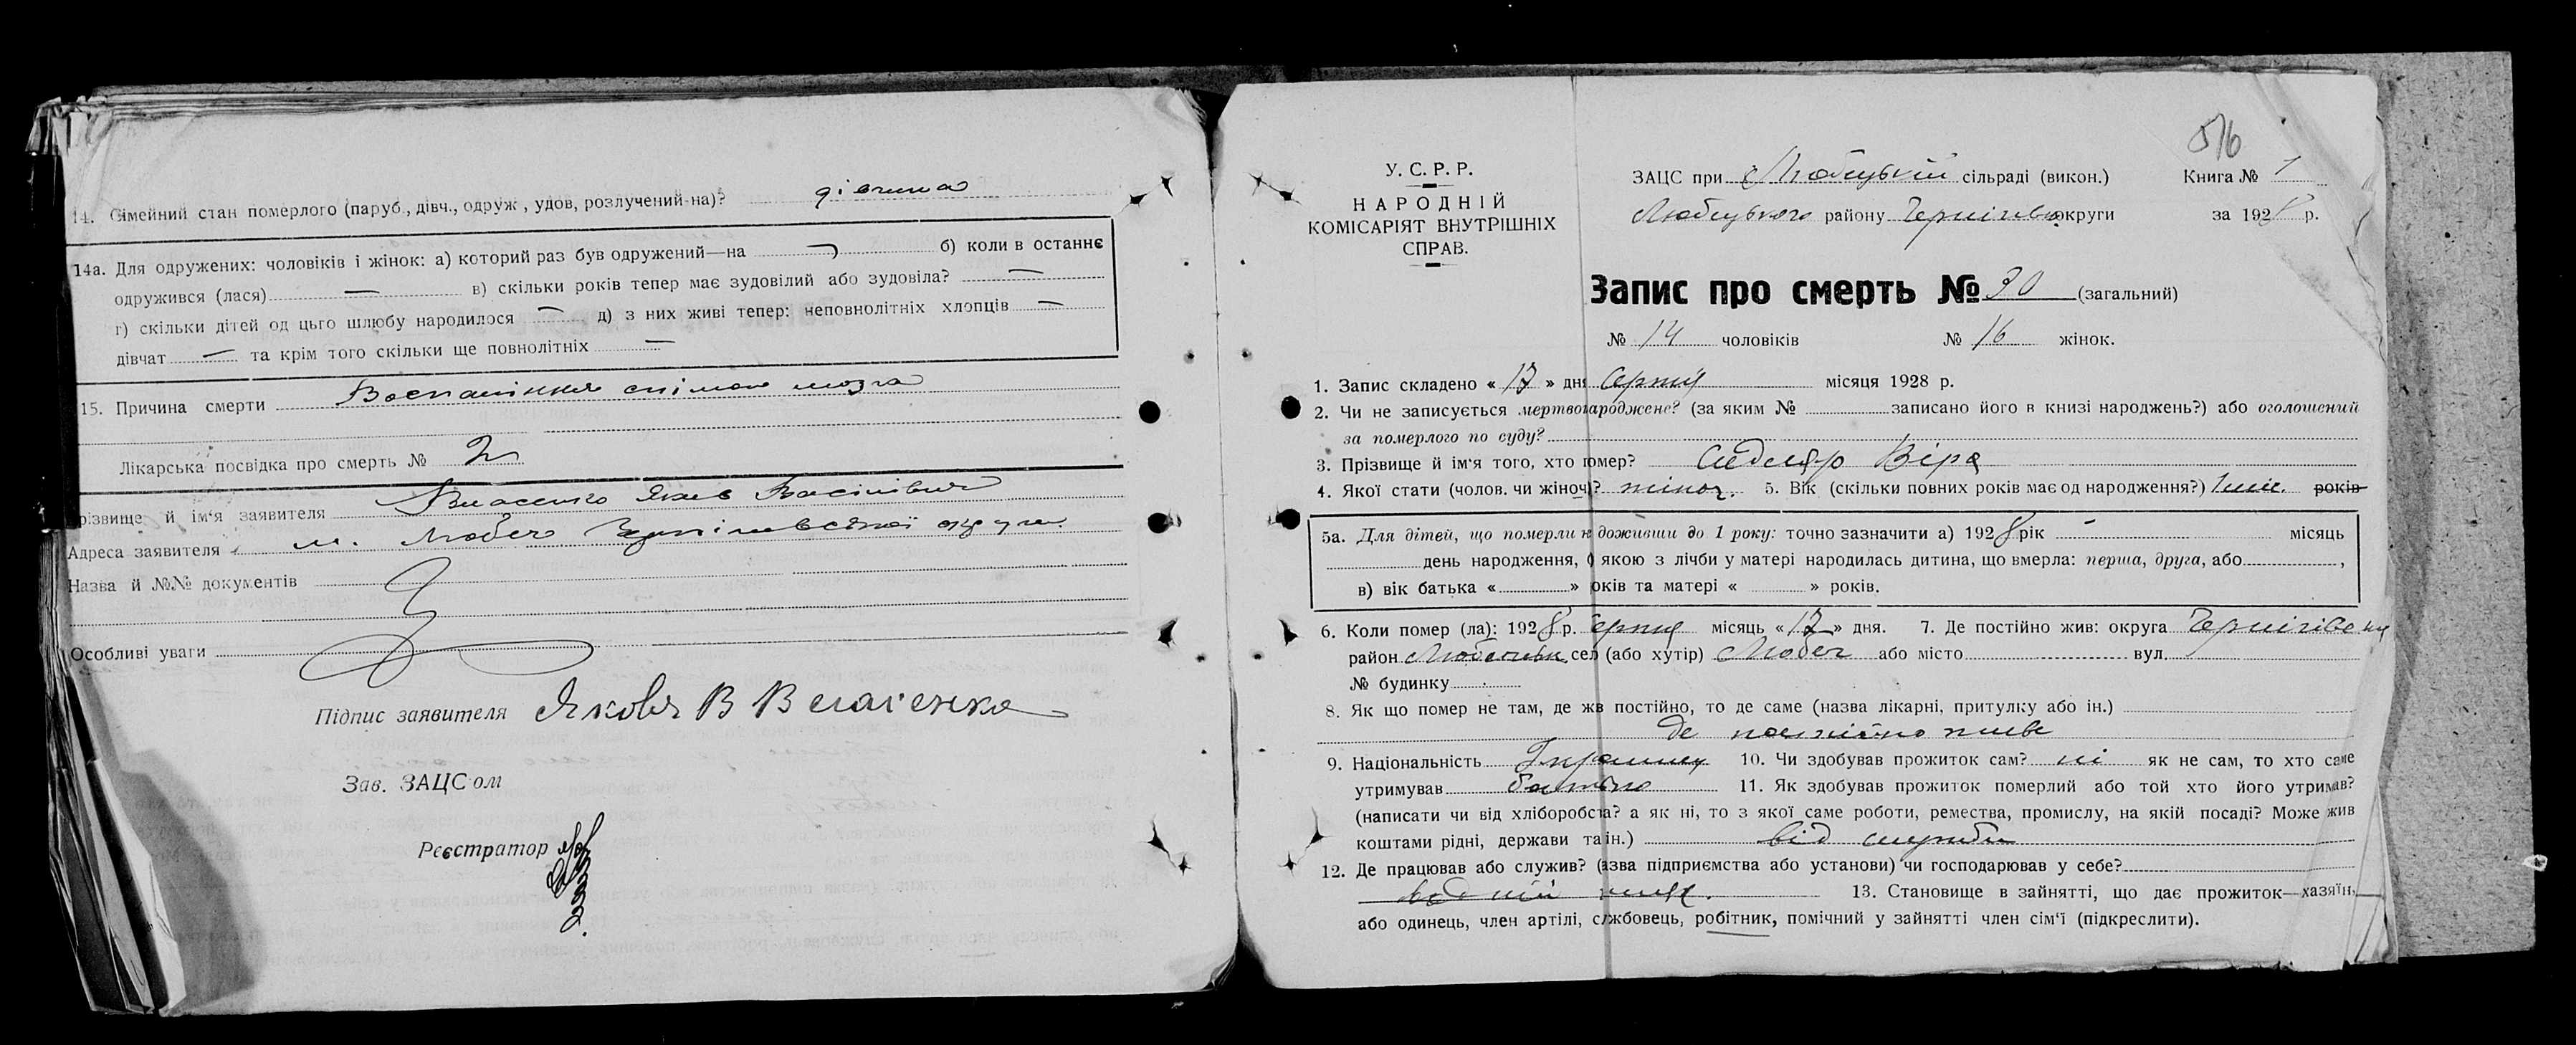 14. Сімейний стан померлого (паруб., дівч., одруж., удов, розлучений-на)? дівчина
14а. Для одружених: чоловіків і жінок: а) которий раз був одружений—на — б) коли в останнє
одружився (лася) — в) скільки років тепер має зудовілий або зудовіла? —
г) скільки дітей од цього шлюбу народилося — д) з них живі тепер: неповнолітніх хлопців —
дівчат — та крім того скільки ще повнолітніх —
15. Причина смерти мозга
Лікарська посвідка про смерть № 2
Прізвище й ім'я заявителя Власенко Яків Васілівич
Адреса заявителя м. Любеч округи
Назва й №№ документів
Особливі уваги
Підпис заявителя Яковъ В Власенко
Зав. ЗАЦСом
Реєстратор
576
У.С.Р.Р.
НАРОДНІЙ
КОМІСАРІЯТ ВНУТРІШНІХ
СПРАВ.
ЗАЦС при Любецькій сільраді (викон.) Книга № 1
Любецького району округи за 1928 р.
Запис про смерть № 30 (загальний)
№ 14 чоловіків № 16 жінок.
1. Запис складено « 17 » дня Серпня місяця 1928 р.
2. Чи не записується мертвонароджене? (за яким № записано його в книзі народжень?) або оголошений
за померлого по суду?
3. Прізвище й ім'я того, хто помер? Сидляр Віра
4. Якої стати (чолов. чи жіноч)? жіноч. 5. Вік (скільки повних років має од народження?) років
5а. Для дітей, що померли н доживши до 1 року: точно зазначити а) 1928 рік місяць
день народження, якою з лічби у матері народилась дитина, що вмерла: перша, друга, або ,
в) вік батька « » років та матері « » років.
6. Коли помер (ла): 1928 р. Серпня місяць « 17 » дня. 7. Де постійно жив: округа
район сел (або хутір) Любеч або місто вул.
№ будинку
8. Як що помер не там, де жв постійно, то де саме (назва лікарні, притулку або ін.)
де постійно живе
9. Національність 10. Чи здобував прожиток сам? ні як не сам, то хто саме
утримував батько 11. Як здобував прожиток померлий або той хто його утримав?
(написати чи від хліборобства? а як ні, то з якої саме роботи, ремества, промислу, на якій посаді? Може жив
коштами рідні, держави та ін.) від служби
12. Де працював або служив? (азва підприємства або установи) чи господарював у себе?
13. Становище в зайнятті, що дає прожиток—хазяїн,
або одинець, член артілі, сжбовець, робітник, помічний у зайнятті член сім'ї (підкреслити).